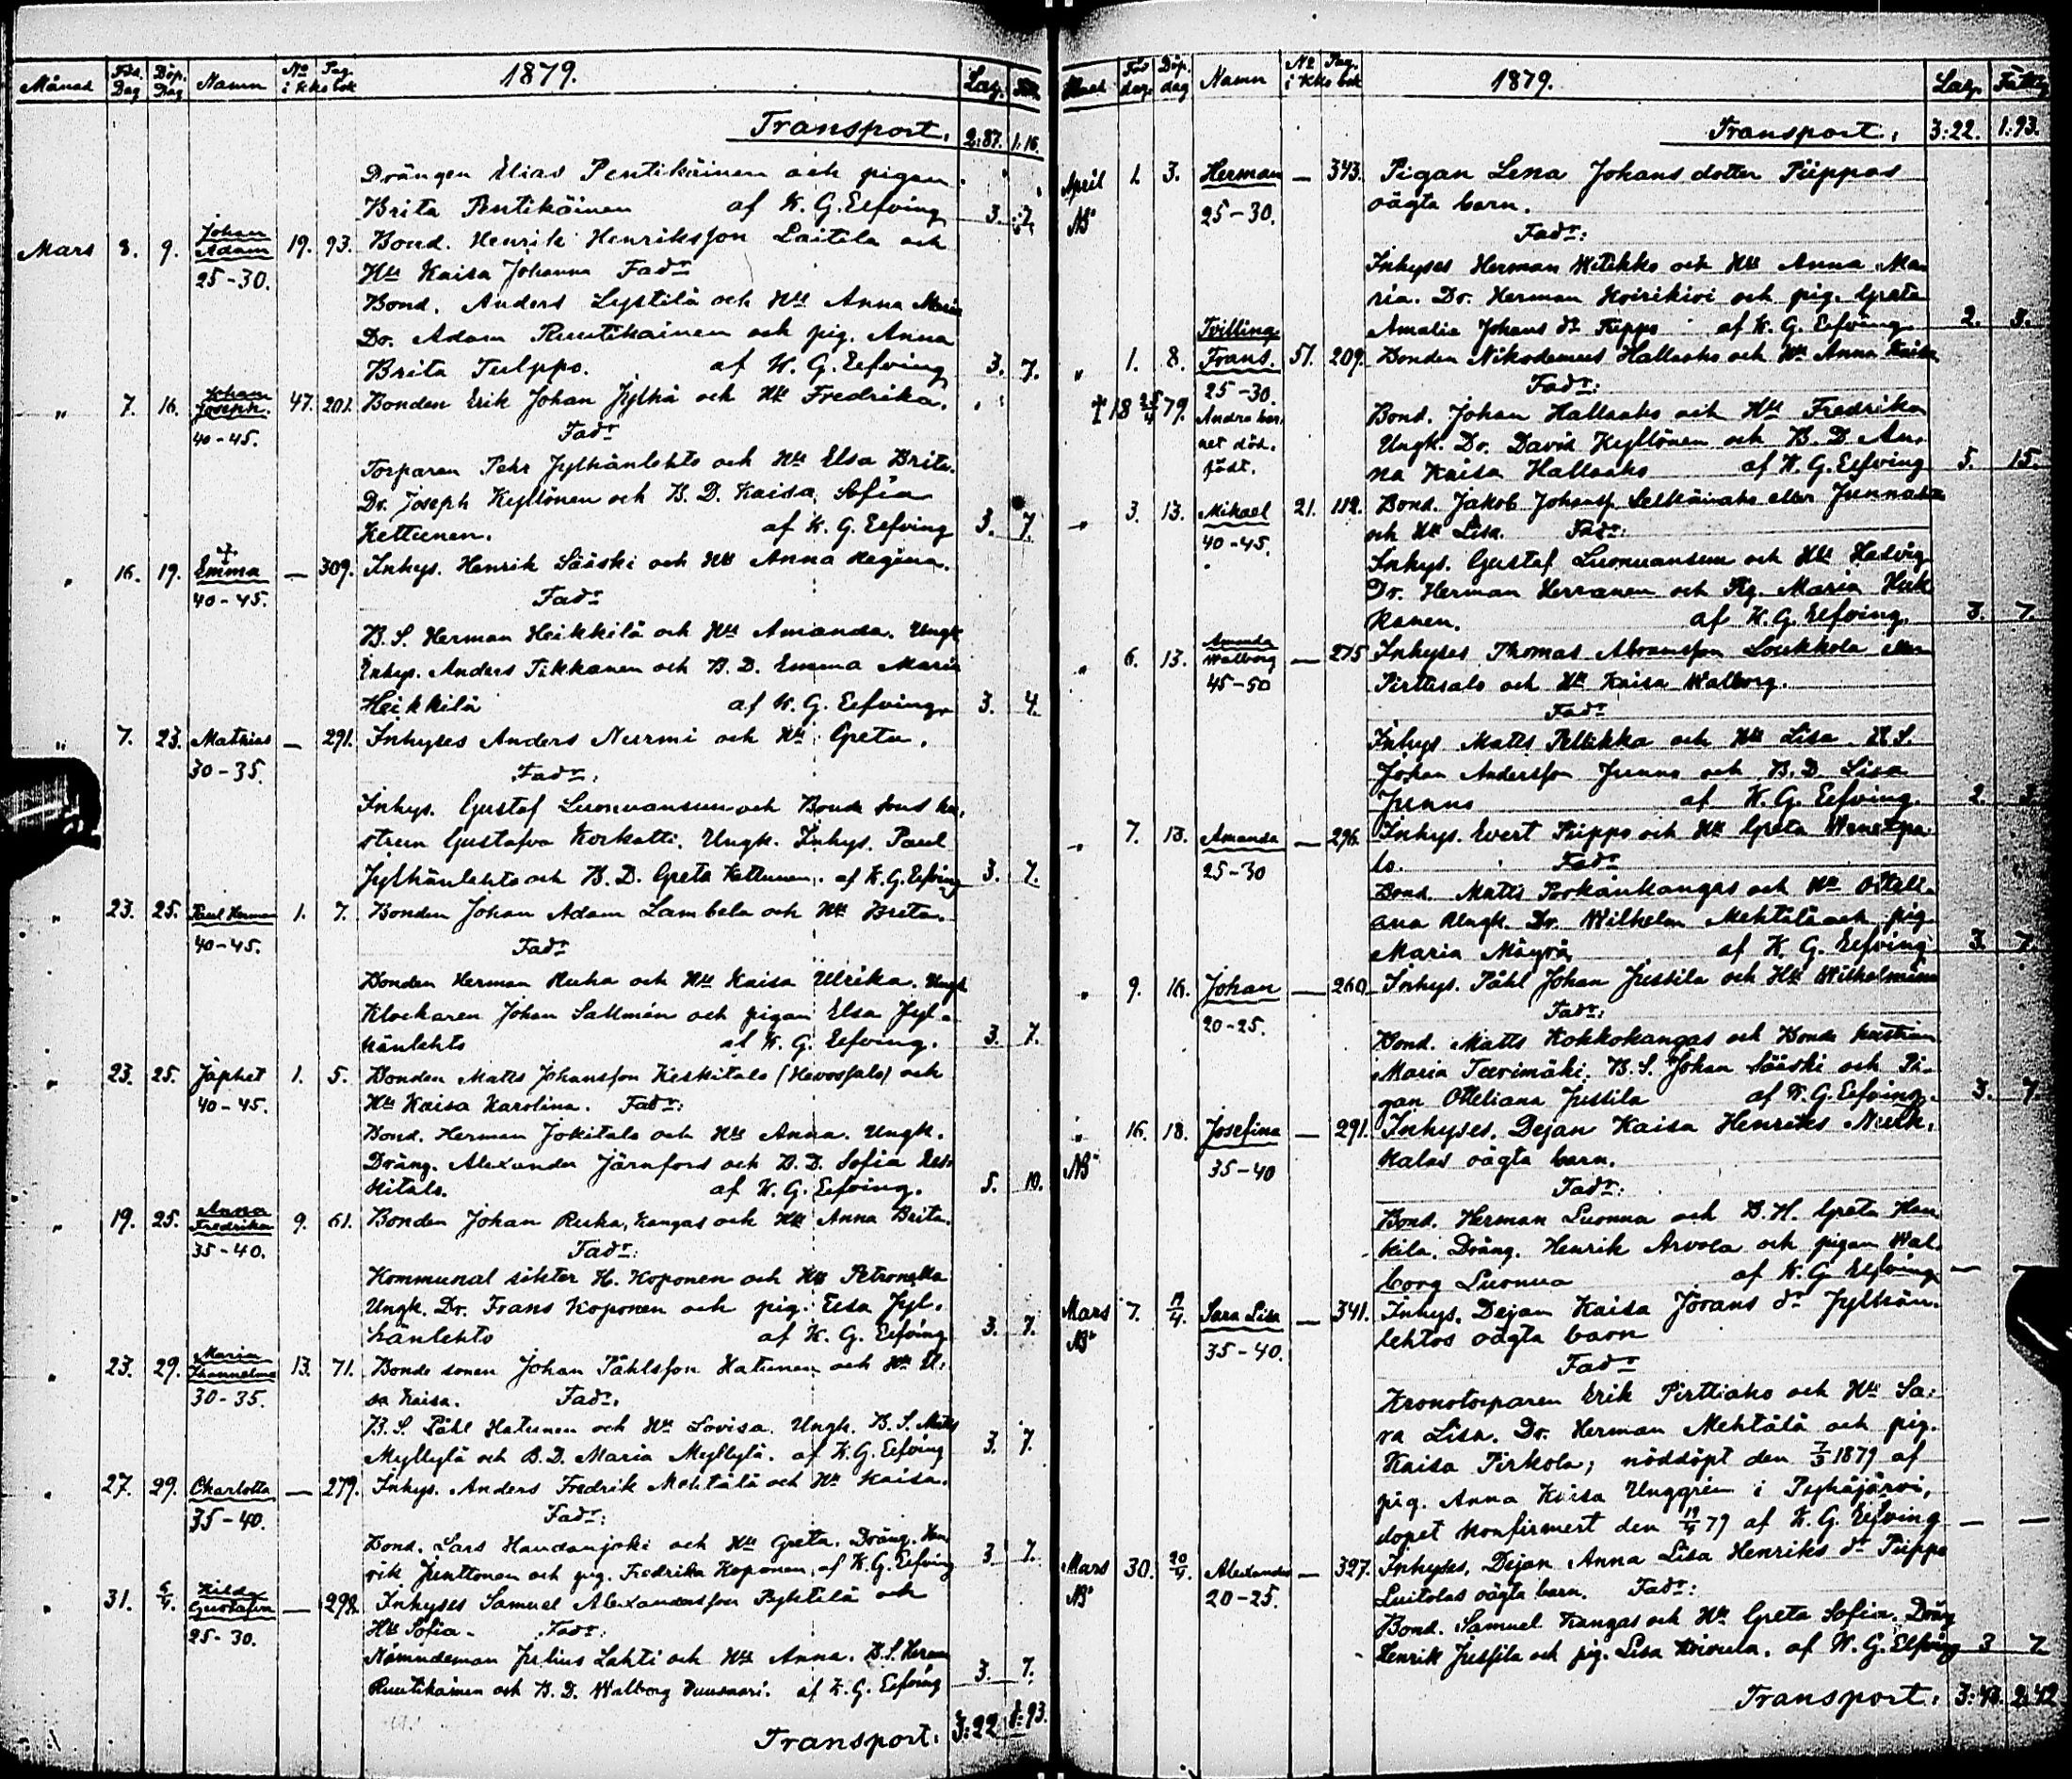 Månad Föd. Dag Döp. Dag Namn No i Kks Pag. bok 1879. Lag.
Transport. 2:87. 1:16.
Drängen Elias Pentikäinen och pigan
Brita Pentikäinen af K. G. Eefving 3. 7.
Mars 8. 9. Johan Adam 19. 93. Bond. Henrik Henriksson Laitila och
25-30. Hu Kaisa Johanna Fadr
Bond. Anders Lystilä och Hu Anna Maria
Dr. Adam Ruutikainen och pig. Anna
Brita Tulppo. af K. G. Eefving 3. 7.
" 7. 16. Johan Joseph. 47. 201. Bonden Erik Johan Jylhä och Hu Fredrika.
40-45. Fadr
Torparen Pehr Jylhänlehto och Hu Elsa Brita.
Dr. Joseph Kyllönen och B. D. Kaisa Sofia
Kettunen. af K. G. Eefving 3. 7.
" 16. 19. Emma — 309. Inhys. Henrik Sääski och Hu Anna Regina.
40-45. Fadr
B. S. Herman Heikkilä och Hu Amanda. Ungk.
Inhys. Anders Tikkanen och B. D. Emma Maria
Heikkilä af K. G. Eefving. 3. 4.
" 7. 23. Mathias — 291. Inhyses Anders Nurmi och Hu Greta.
30-35. Fadr:
Inhys. Gustaf Luonuansuu och Bonde sons hu-
strun Gustafva Korkatti. Ungk. Inhys. Paul
Jylhänlehto och B. D. Greta Kettunen. af K. G. Eefving 3. 7.
" 23. 25. Paul Herman 1. 7. Bonden Johan Adam Lambela och Hu Brita.
40-45. Fadr
Bonden Herman Ruha och Hu Kaisa Ulrika. Ungk
Klockaren Johan Sallmén och pigan Elsa Jyl-
hänlehto af K. G. Eefving. 3. 7.
" 23. 25. Japhet 1. 5. Bonden Matts Johansson Keskitalo (Hevossalo) och
40-45. Hu Kaisa Karolina. Fadr:
Bond. Herman Jokitalo och Hu Anna. Ungk.
Dräng. Alexander Järnfors och B. D. Sofia Kes-
kitalo. af K. G. Eefving. 5. 10.
" 19. 25. Anna Fredrika 9. 61. Bonden Johan Ruha, Kangas och Hu Anna Brita.
35-40. Fadr:
Kommunal sikter H. Koponen och Hu Petronella
Ungk. Dr. Frans Koponen och pig. Elsa Jyl-
hänlehto af K. G. Eefving 3. 7.
" 23. 29. Maria 13. 71. Bonde sonen Johan Påhlsson Hatunen och Hu El-
30-35. sa Kaisa. Fadr.
B. S. Påhl Hatunen och Hu Lovisa. Ungk. B. S. Matts
Myllylä och B. D. Maria Myllylä. af K. G. Eefving 3. 7.
" 27. 29. Charlotta — 279. Inhys. Anders Fredrik Mehtälä och Hu Kaisa.
35-40. Fadr:
Bond. Lars Haudanjoki och Hu Greta. Dräng. Hen
rik Junttonen och pig. Fredrika Koponen. af K. G. Eefving 3. 7.
" 31. 6/4. Hilda Gustafva — 298. Inhyses Samuel Alexandersson Pyktilä och
25-30. Hu Sofia. Fadr:
Nämndeman Julius Lahti och Hu Anna. B. S. Herman
Ruutikainen och B. D. Walborg af K. G. Eefving 3. 7.
Transport. 3:22 1:93.
Månad Föd dag. Döp. dag Namn No i Kks Pag. bok 1879. Lag. Fattig
Transport. 3:22. 1:93.
April 1. 3. Herman — 373. Pigan Lena Johans dotter Piippos
NB 25-30. oägta barn.
Fadr:
Inhyses Herman Witikko och Hu Anna Ma-
ria. Dr. Herman Koirikivi och pig. Greta
Amalia Johans dr Piippo af K. G. Eefving. 2. 3.
Tvilling
" 1. 8. Frans. 51. 209. Bonden Nikodemus Hallaaho och Hu Anna Kaisa
25-30. Fadr:
† 18 25/4 79. Andra bar- Bond. Johan Hallaaho och Hu Fredrika
net död- Ungk. Dr. David Kyllönen och B. D. An-
född. na Kaisa Hallaaho af K. G. Eefving 5. 15.
" 3. 13. Mikael 21. 112. Bond. Jakob Johanss. Selkäinaho eller Junnaho
40-45. och Hu Lisa. Fadr:
Inhys. Gustaf Luonuansuu och Hu Hedvig
Dr. Herman Herranen och Pig. Maria Huk
kanen. af K. G. Eefving. 3. 7.
" 6. 13. Amanda Walborg — 275 Inhyses Thomas Abramsson Loukkola eller
45-50 Pirttisalo och Hu Kaisa Walborg.
Fadr
Inhys Matts Pellikka och Hu Lisa B. S.
Johan Andersson Junno och B. D. Lisa
Junno af K. G. Eefving. 2. 3.
" 7. 13. Amanda — 296. Inhys. Evert Piippo och Hu Greta Wenetpa-
25-30 lo. Fadr
Bond. Matts Porkankangas och Hu Otteli-
ana Ungk. Dr. Wilhelm Mehtälä och pig.
Maria Mäyrä af K. G. Eefving 3. 7.
" 9. 16. Johan — 260 Inhys. Påhl Johan Jussila och Hu Wilhelmina
20-25. Fadr:
Bond. Matts Kokkokangas och Bonde hustrun
Maria Tervimäki. B. S. Johan Sääski och Pi-
gan Otteliana Jussila af K. G. Eefving. 3. 7.
" 16. 18. Josefina — 291. Inhyses. Dejan Kaisa Henriks Niek-
NB 35-40 kalas oägta barn.
Fadr:
Bond. Herman Luonua och B. H. Greta Han-
kila. Dräng. Henrik Arvola och pigan Wal-
borg Luonua af K. G. Eefving — —
Mars 7. 19/4. Sara Lisa — 341. Inhys. Dejan Kaisa Jörans dr Jylhän-
NB 35-40. lehtos oägta barn
Fadr
Kronotorparen Erik Pirttiaho och Hu Sa-
ra Lisa. Dr. Herman Mehtälä och pig.
Kaisa Pirkola; nöddöpt den 7/3 1879 af
pig. Anna Kaisa Unggrén i Pyhäjärvi,
dopet konfirmert den 19/4 79 af K. G. Eefving — —
Mars 30. 20/4. Alexander — 327. Inhyses, Dejan Anna Lisa Henriks dr Piippo
NB 20-25. Luitolas oägta barn. Fadr:
Bond. Samuel Kangas och Hu Greta Sofia. Dräng
Henrik Jussila och pig. Lisa af K. G. Eefving 3 7
Transport. 3:48. 2:42